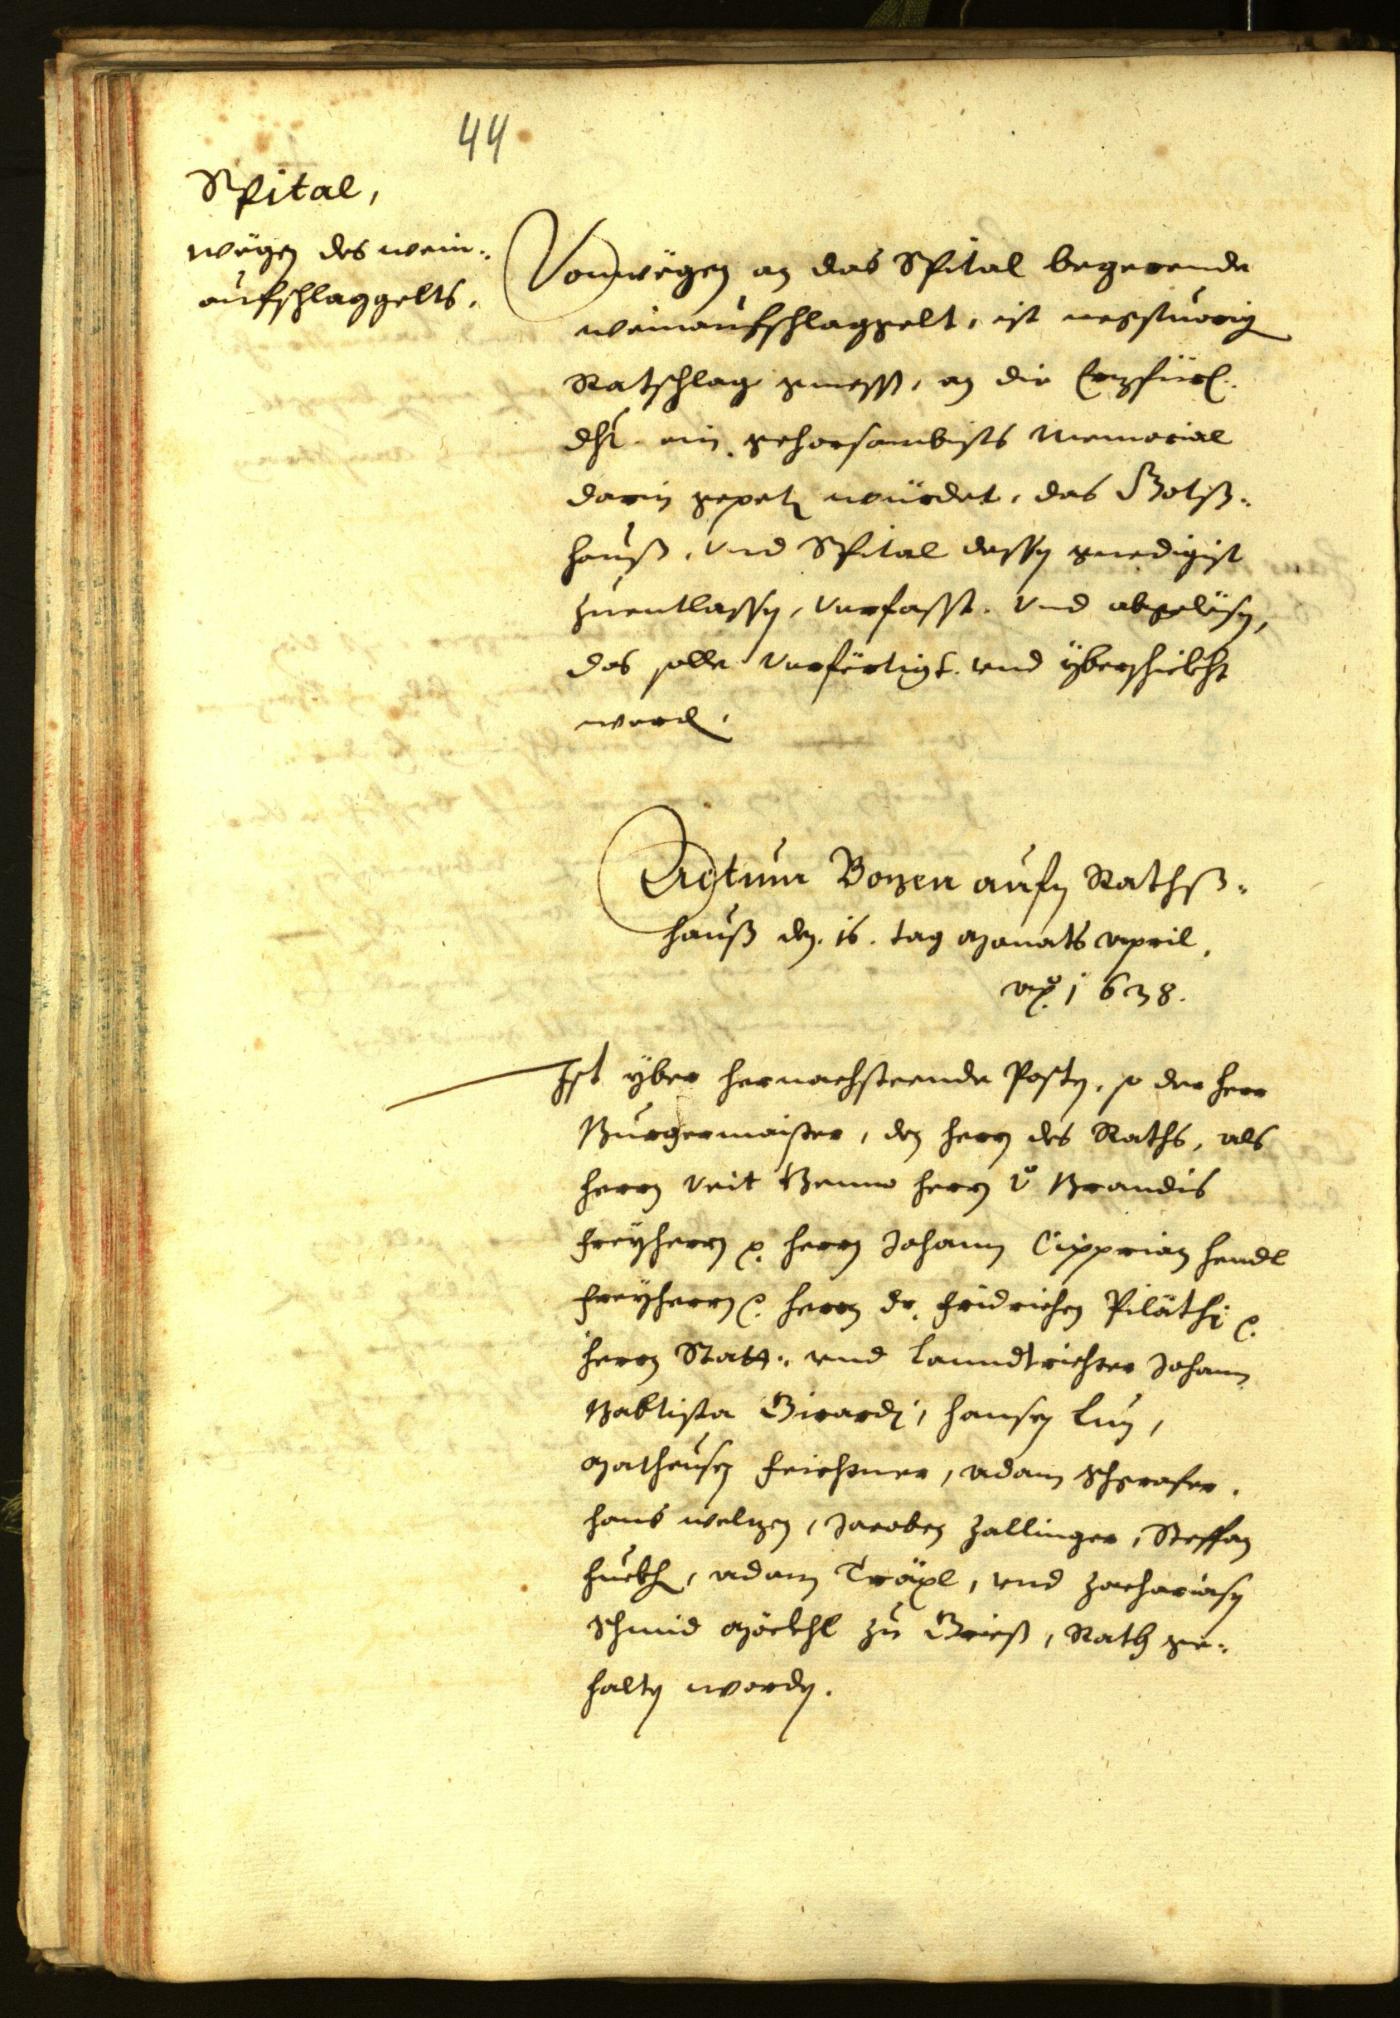 44
Spital,
wegen des wein-
aufschlaggelts.
Vonwegen an das Spital begerende
weinaufschlaggelt, ist negstüerig
Ratschlag gmess, an die Erzfürl.
dht. ein gehorsambists Memorial
darin gepetn würdet, das Gotß-
hauß, vnd Spital dessen gnedigist
zuentlassen, verfasst. vnd abgelesen,
das solle verfertigt. vnd yberschickht
werdn.
Actum Bozen aufn Rathß-
hauß den .16. tag Monats April,
ao. 1638.
Ist yber hernachsteende Posten, so der herr
Burgermaister, den herrn des Raths, als
herrn Veit Benno herrn v. Brandis
freyherrn etc. herrn Johann Ciprian hendl
freyherrn etc. herrn dr. fridrichen Piläthi etc.
herrn Statt- vnd Lanndtrichter Johann
Babtista Girardi, hansen Lun,
Matheusen Feichtner, Adam Schgrafer.
hans welzen, Jacoben Zallinger, Steffan
hueber, Adam Träxl, vnd Zachariasn
Schmid Möckhl zu Grieß, Rath ge-
halten worden.